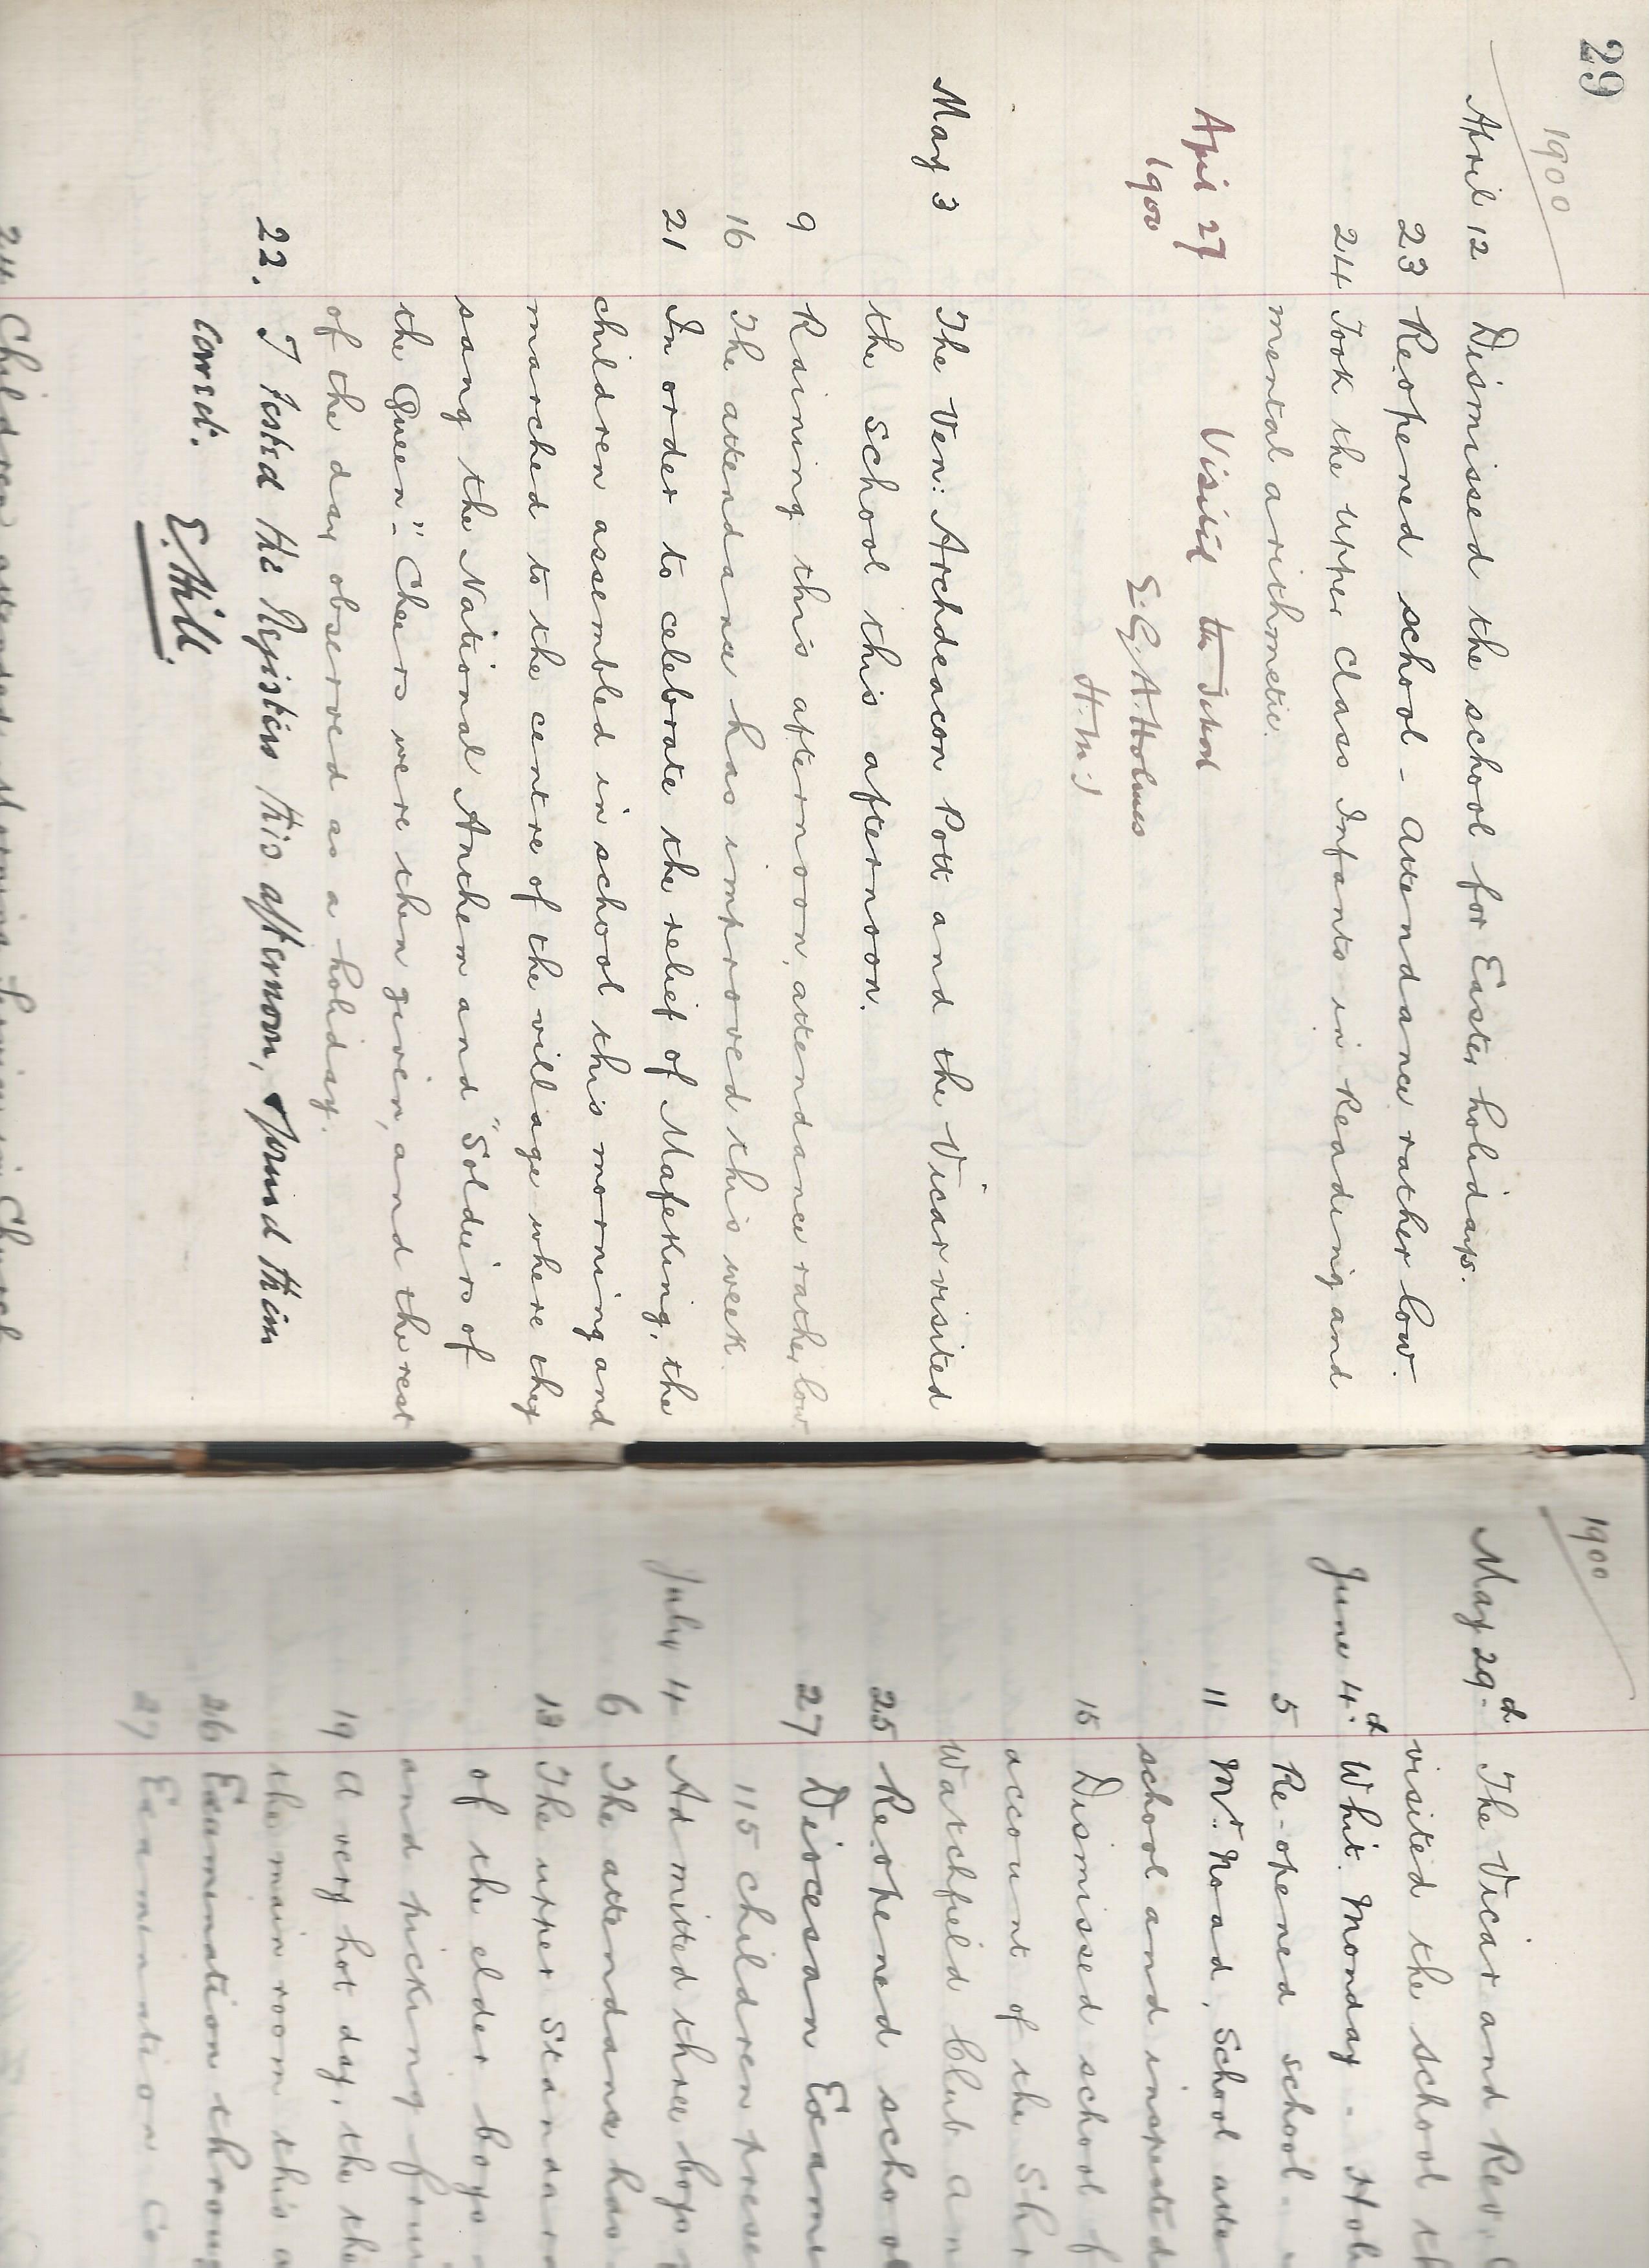 29
1900
April 12 Dismissed the school for Easter holidays.
23 Reopened school - Attendance rather low.
24 Took the upper class Infants in Reading and
mental arithmetic.
April 27 Visited the School
1900
E.G.A. Holmes
H.M.I
May 3 The Ven: Archdeacon Pott and the Vicar visited
the school this afternoon.
9 Raining this afternoon, attendance rather low
16 The attendance has improved this week.
21 In order to celebrate the relief of Mafeking, the
children assembled in school this morning and
marched to the centre of the village where they
sang the National Anthem and "Soldiers of
the Queen". Cheers were then given, and the rest
of the day observed as a holiday.
22. I tested the Registers this afternoon, & found them
correct.
E. Hill.
24 Children attended Morning Service in Church
1900
May 29th The Vicar and Rev.
visited the school th
June 4th Whit. Monday - Hol
5 Re-opened school -
11 Mr. Noad, School atte
school and inspected
15 Dismissed school f
account of the Shr
Watchfield Club An
25 Reopened school
27 Diocesan Exami
115 children prese
July 4 Admitted three boys
6 The attendance has
13 The upper Standar
of the elder boys
and picking frui
19 A very hot day, the the
the main room this a
26 Examination throug
27 Examination Co